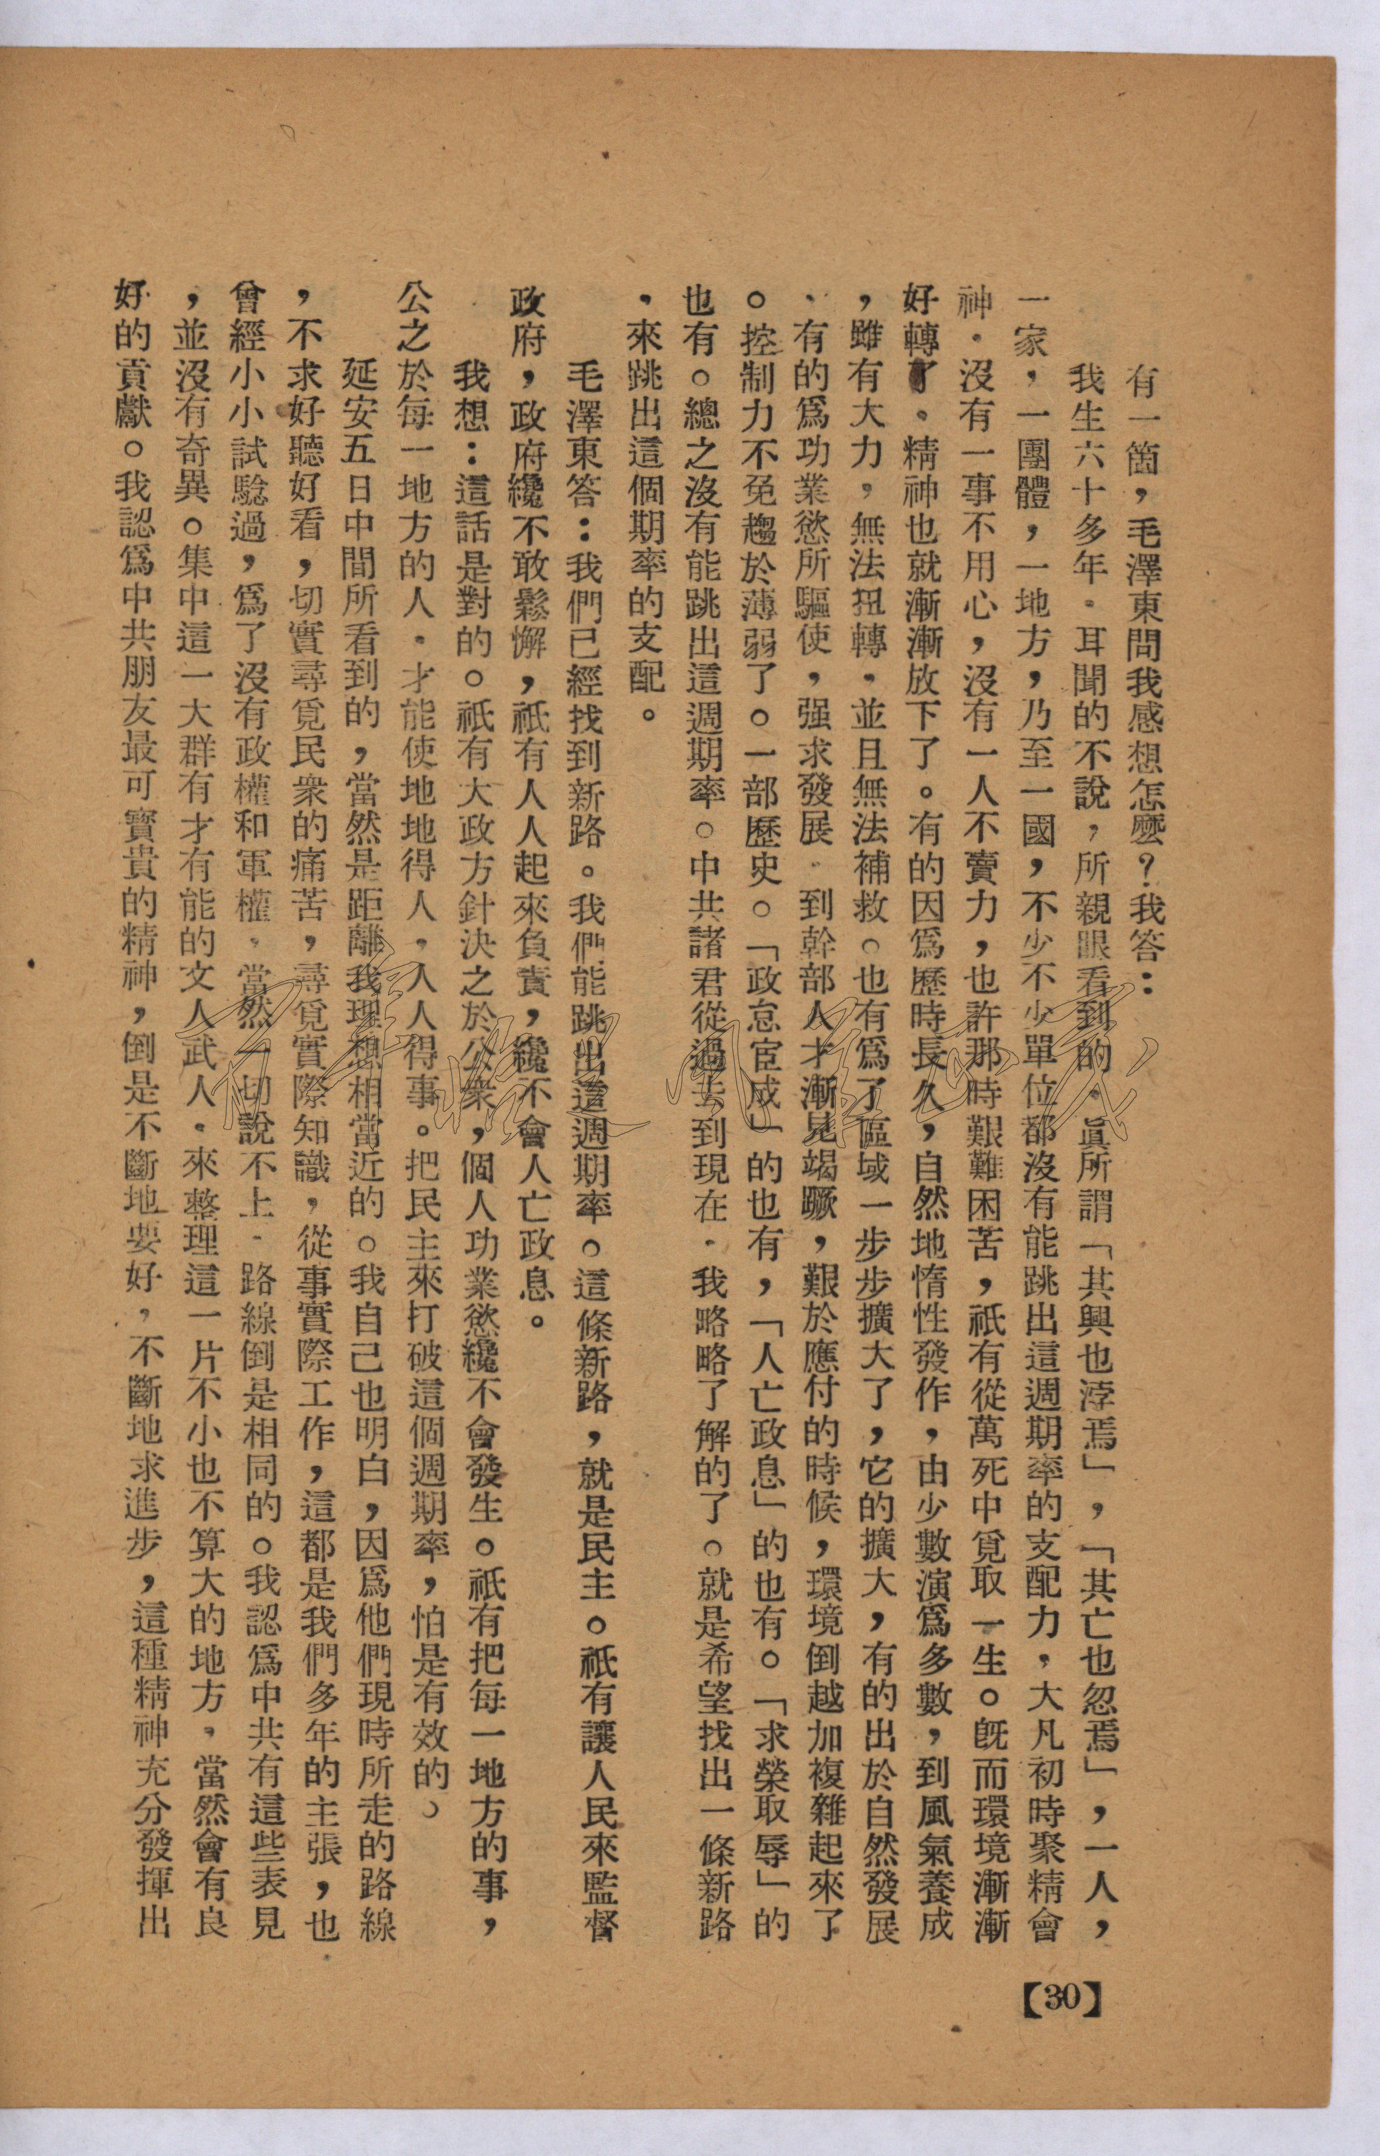 有一箇，毛澤東問我感想怎麼？我答：
我生六十多年，耳聞的不說，所親眼看到的，眞所謂「其興也浡焉」，「其亡也忽焉」，一人，
一家，一團體，一地方，乃至一國，不少不少單位都沒有能跳出這週期率的支配力，大凡初時聚精會
神，沒有一事不用心，沒有一人不賣力，也許那時艱難困苦，祇有從萬死中覓取一生。旣而環境漸漸
好轉了，精神也就漸漸放下了。有的因爲歷時長久，自然地惰性發作，由少數演爲多數，到風氣養成
，雖有大力，無法扭轉，並且無法補救。也有爲了區域一步步擴大了，它的擴大，有的出於自然發展
，有的爲功業慾所驅使，强求發展，到幹部人才漸見竭蹶，艱於應付的時候，環境倒越加複雜起來了
。控制力不免趨於薄弱了。一部歷史。「政怠宦成」的也有，「人亡政息」的也有。「求榮取辱」的
也有。總之沒有能跳出這週期率。中共諸君從過去到現在，我略略了解的了。就是希望找出一條新路
，來跳出這個期率的支配。
毛澤東答：我們已經找到新路。我們能跳出這週期率。這條新路，就是民主。祇有讓人民來監督
政府，政府纔不敢鬆懈，祇有人人起來負責，纔不會人亡政息。
我想：這話是對的。祇有大政方針決之於公衆，個人功業慾纔不會發生。祇有把每一地方的事，
公之於每一地方的人，才能使地地得人，人人得事。把民主來打破這個週期率，怕是有效的。
延安五日中間所看到的，當然是距離我理想相當近的。我自己也明白，因爲他們現時所走的路線
，不求好聽好看，切實尋覓民衆的痛苦，尋覓實際知識，從事實際工作，這都是我們多年的主張，也
曾經小小試驗過，爲了沒有政權和軍權，當然一切說不上，路線倒是相同的。我認爲中共有這些表見
，並沒有奇異。集中這一大群有才有能的文人武人，來整理這一片不小也不算大的地方，當然會有良
好的貢獻。我認爲中共朋友最可寶貴的精神，倒是不斷地要好，不斷地求進步，這種精神充分發揮出
【30】